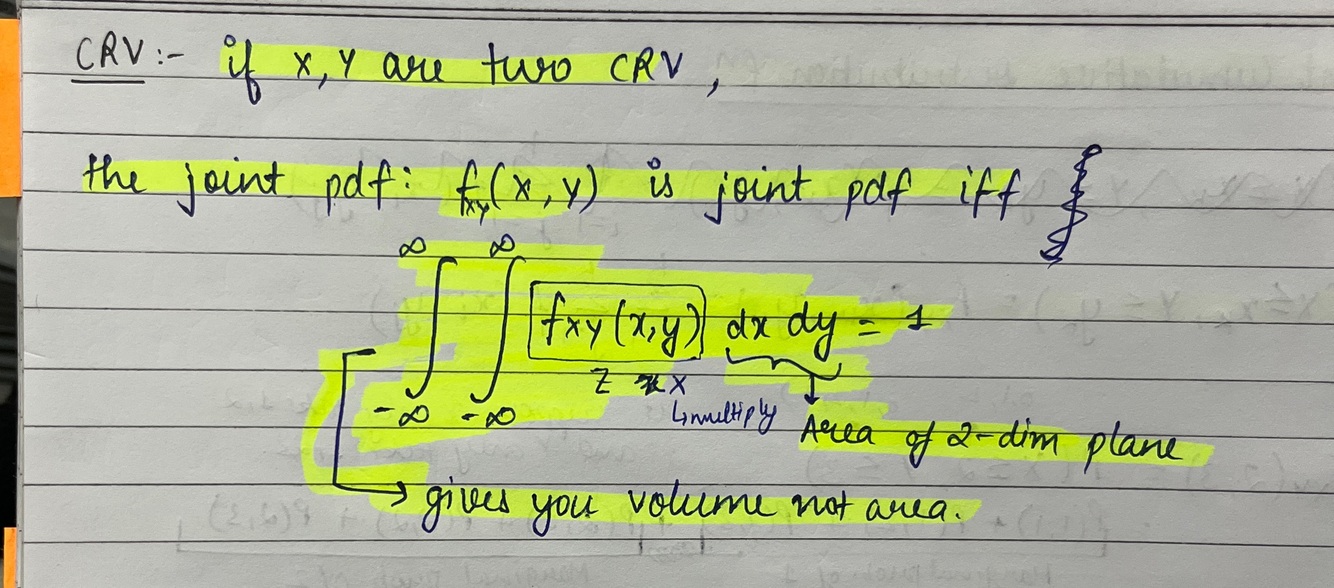 CRV :- if X, Y are two CRV,
the joint pdf: fxy(x, y) is joint pdf iff
∞ ∞
∫ ∫ fxy(x,y) dx dy = 1
-∞ -∞
z x
↳multiply
Area of 2-dim plane
→ gives you volume not area.